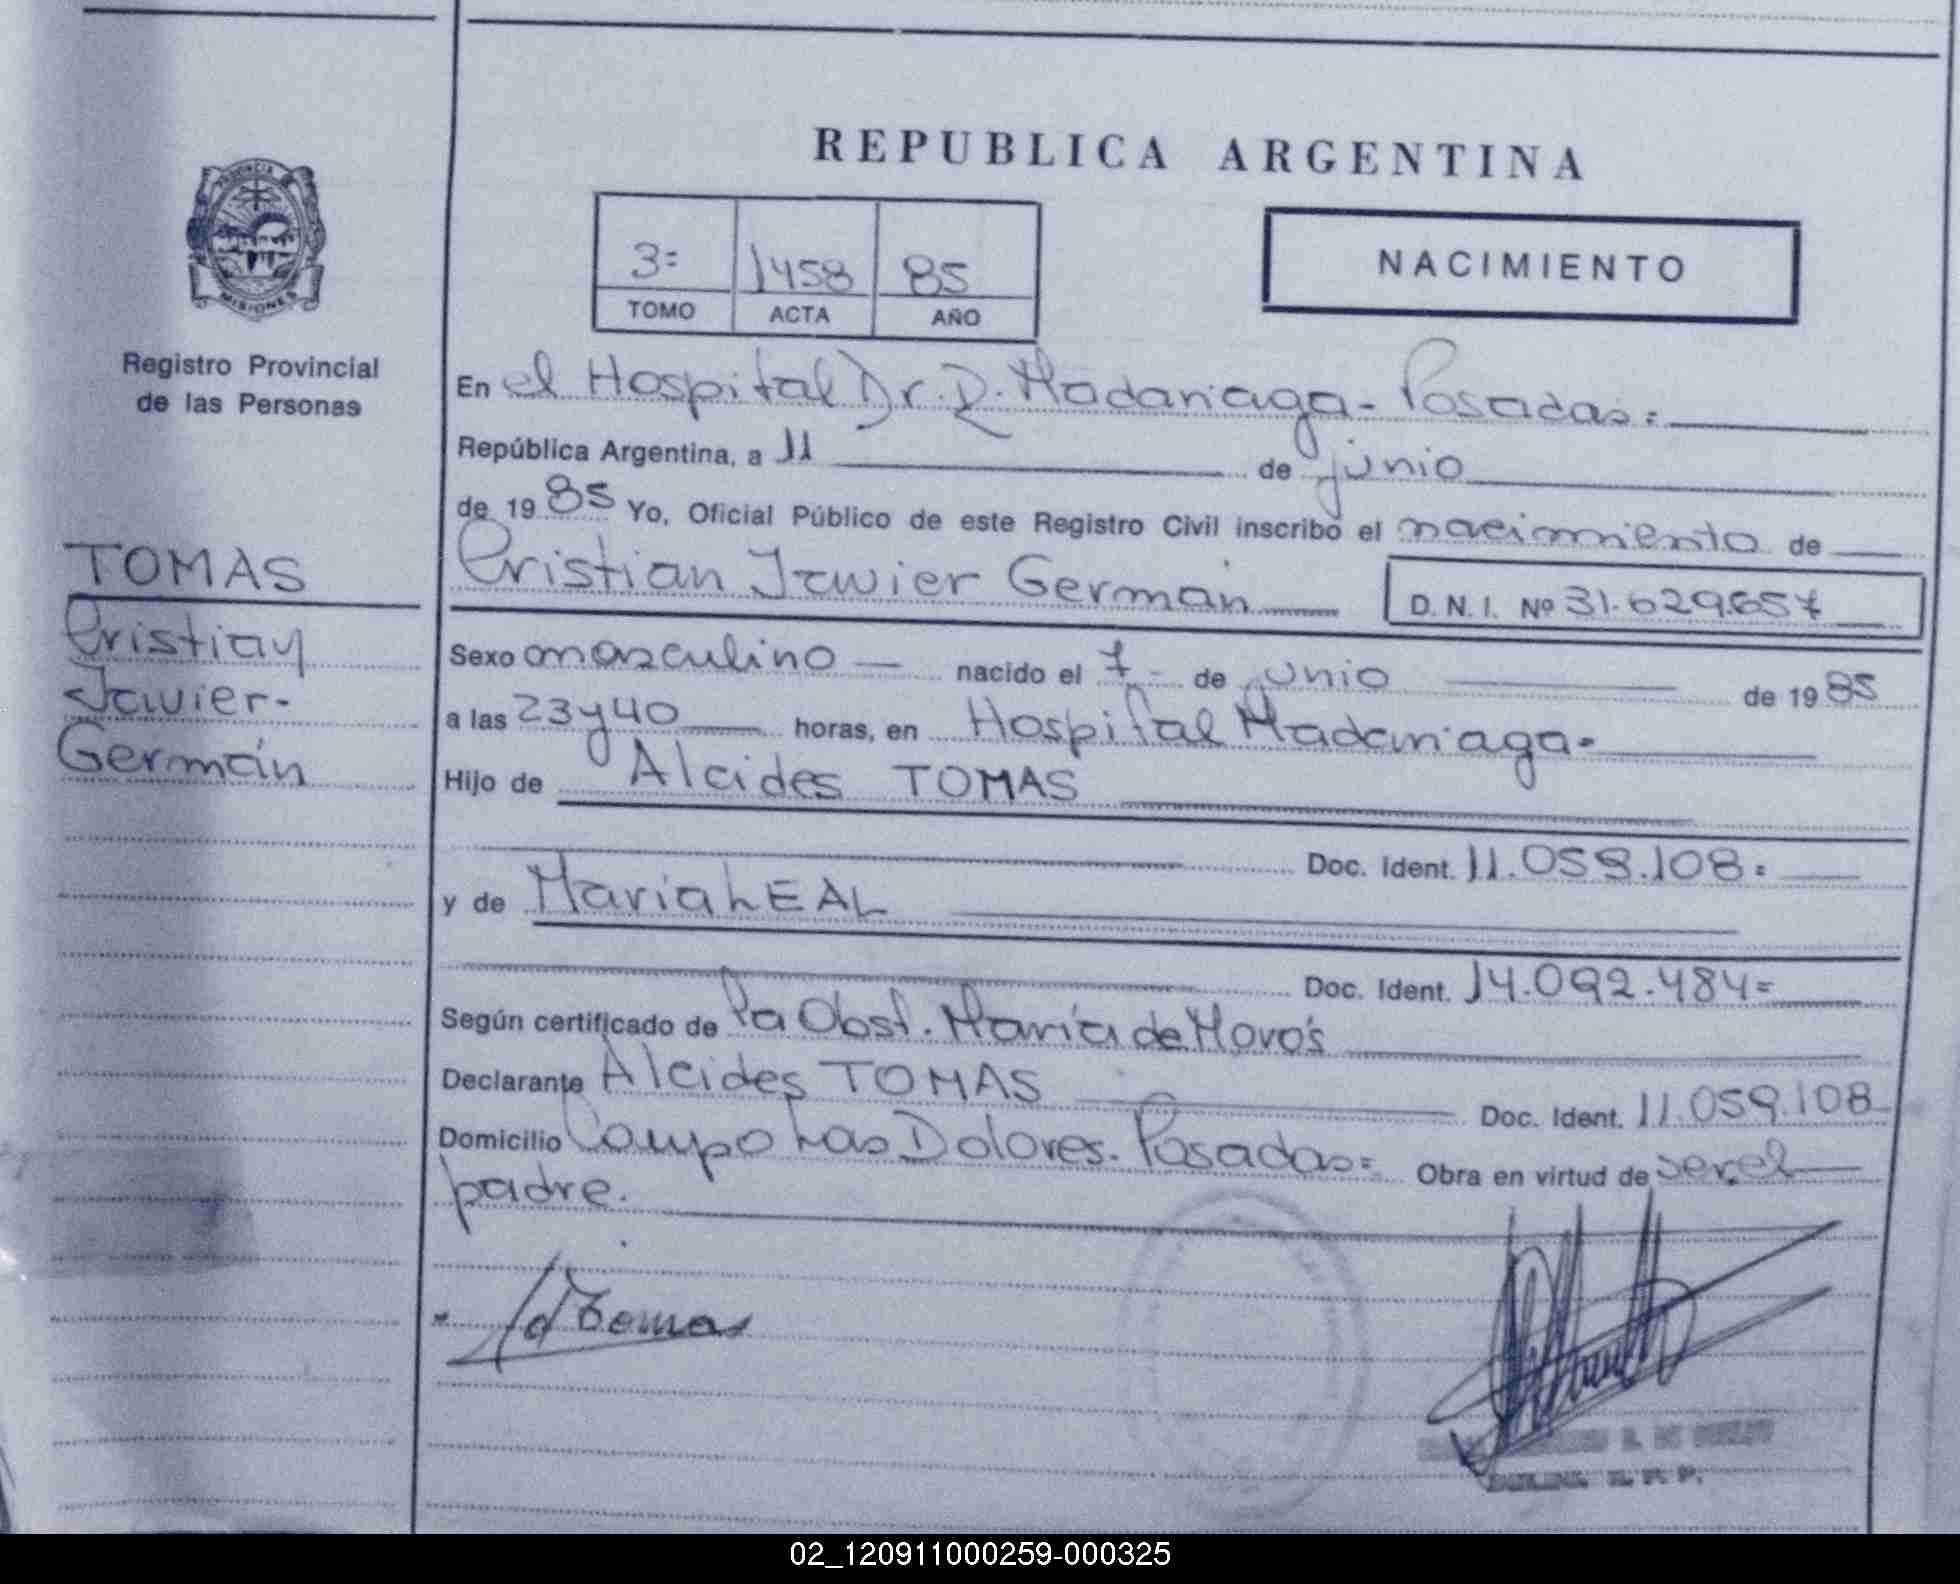 REPUBLICA ARGENTINA
PROVINCIA DE
MISIONES
Registro Provincial
de las Personas
3=
1458
85
TOMO
ACTA
AÑO
NACIMIENTO
En el Hospital Dr. R. Madariaga - Posadas =
República Argentina, a 11 de junio
de 1985 Yo, Oficial Público de este Registro Civil inscribo el nacimiento de
Cristian Javier Germán D.N.I. Nº 31.629.657
TOMAS
Cristian
Javier-
Germán
Sexo masculino — nacido el 7 - de junio de 1985
a las 23 y 40 horas, en Hospital Madariaga-
Hijo de Alcides TOMAS
Doc. Ident. 11.059.108=
y de Maria LEAL
Doc. Ident. 14.092.484=
Según certificado de la Obst. María de
Declarante Alcides TOMAS Doc. Ident. 11.059.108
Domicilio Las Dolores. Posadas= Obra en virtud de ser el
padre.
Tomas
02_120911000259-000325